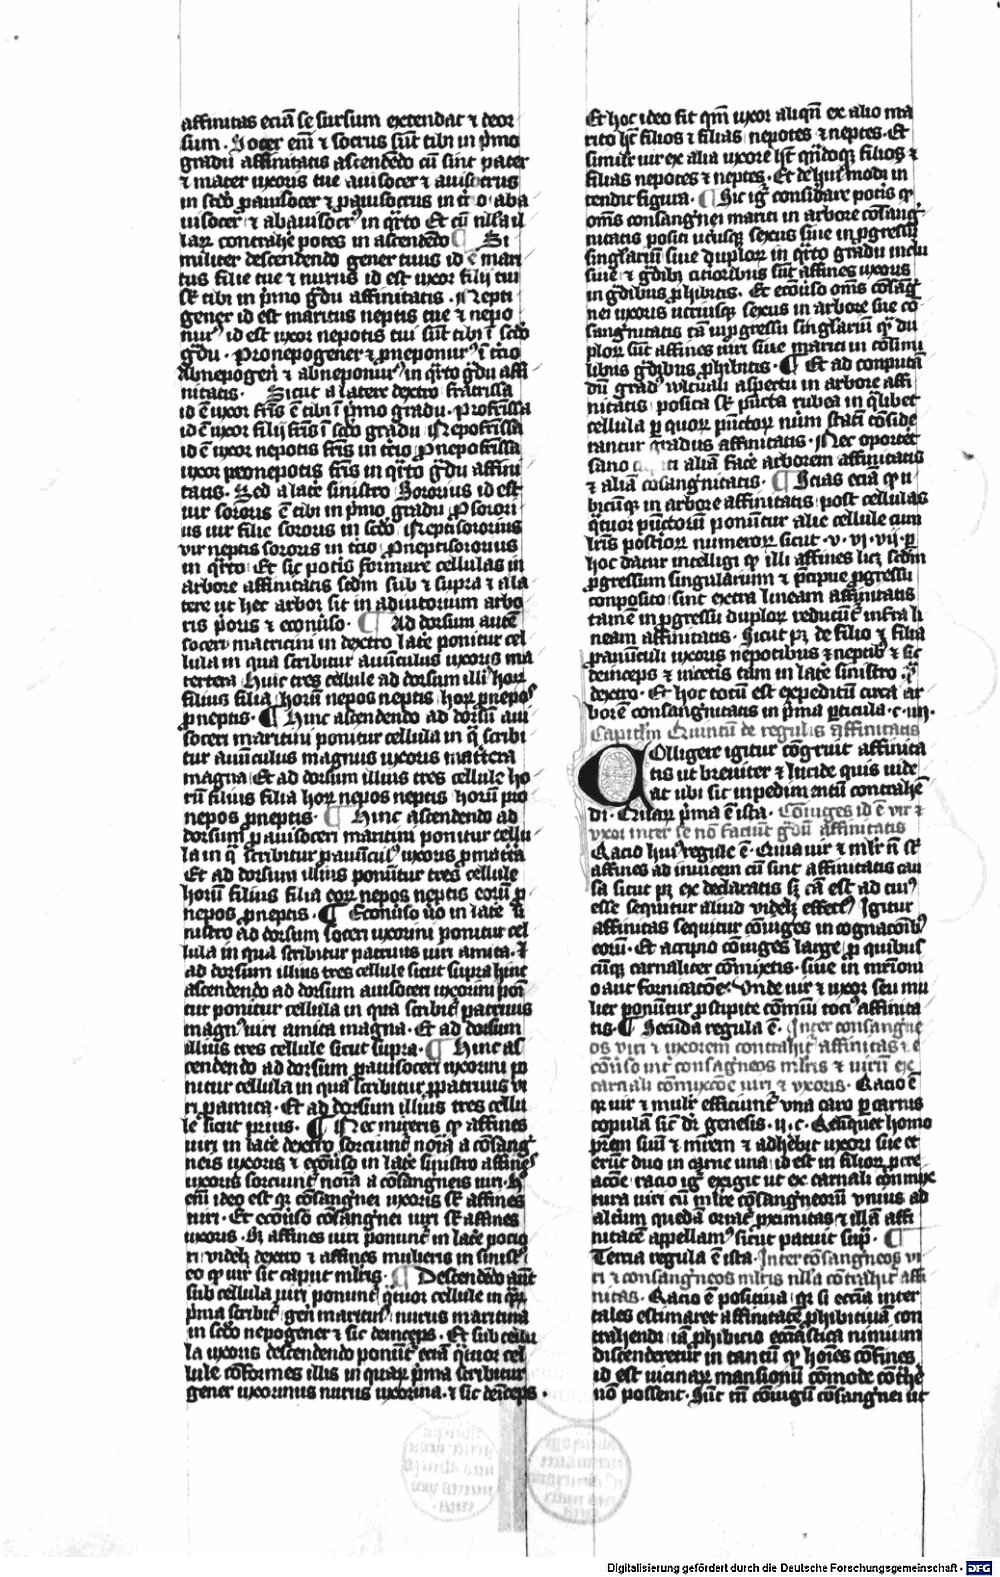 affinitas eciā se sursum extendat ⁊ deor
sum. Socer em̄ ⁊ socrus sūt tibi in pͥmo
gradu affinitatis ascendēdo cū sint pater
⁊ mater uxoris tue auisocer ⁊ auisocrus
in scdo ꝓauisocer ⁊ ꝓauisocrus in tͨio aba
uisocer ⁊ abauisocrꝰ in qͣrto Et cū nulla il
larꝝ contrahe᷒ potes in ascendēdo ¶ Si
militer descendendo gener tuus id ē mari
tus filie tue ⁊ nurus id est uxor filij tui
st̄ tibi in pͥmo gͣdu affinitatis. Nepti
gener id est maritus neptis tue ⁊ nepo
nurꝰ id est uxor nepotis tui sūt tibi ī scdo
gͣdu. Pronepogener ⁊ ꝓneponurꝰ ī tͨio
Abnepogen̄ ⁊ abneponurꝰ in qͣrto gͣdu affi
nitatis. Sicut a latere dextro fratrissa
id ē uxor frīs ē tibi ī pͥmo gradu. Profrīssa
id ē uxor filij frīs ī scdo gradu Nepofrīssa
id ē uxor nepotis frīs in tͨio ꝓnepofrīssa
uxor pronepotis frīs in qͣrto gͣdu affini
tatis. Sed a late᷒ sinistro Sororius id est
uir sororis ē tibi in pͥmo gradu ꝓsorori
us uir filie sororis in scdo Neptisororius
vir neptis sororis in tͨio ꝓneptisororius
in qͣrto Et sic potis formare cellulas in
arbore affinitatis scdm sub ⁊ supra ⁊ a la
tere ut hec arbor sit in adiutorium arbo
ris pͥoris ⁊ econuͦso. ¶ Ad dorsum autē
soceri matricini in dextro late᷒ ponitur cel
lula in qua scribitur auūculus uxoris ma
tertera Huic tres cellule ad dorsum illi horꝝ
filius filia horū nepos neptis horꝝ ꝓneposͥ
ꝓneptis. ¶ Hinc ascendendo ad dorsū aui
soceri maritini ponitur cellula in qͣ scribi
tur auūculus magnus uxoris mat᷒tera
magna Et ad dorsum illius tres cellule ho
rū filius filia horꝝ nepos neptis horū pro
nepos ꝓneptis. ¶ Hinc ascendendo ad
dorsum ꝓauisoceri maritini ponitur cellu
la in qͣ scribitur ꝓauūculꝰ uxoris ꝓmat᷒tͣa
Et ad dorsum illius ponūtur tres cellule
horū filius filia eorꝝ nepos neptis eorū ꝓ
nepos ꝓneptis. ¶ Econuͦso uͦo in late᷒ si
nistro ad dorsum soceri uxorini ponitur cel
lula in qua scribitur patruus uiri amita. Et
ad dorsum illius tres cellule sicut supra hinc
ascendendo ad dorsum auisoceri uxorini poni
tur ponitur cellula in qua scribitͬ patruus
magnꝰ uiri amita magna. Et ad dorsum
illius tres cellule sicut supra. ¶ Hinc as
cendendo ad dorsum ꝓauisoceri uxorini po
nitur cellula in qua scribitur ꝓpatruus ui
ri ꝓamita. Et ad dorsum illius tres cellu
le sicut prius. ¶ Nec mireris qꝫ affines
uiri in late᷒ dextro sorciunt᷒ noīa a cōsang
neis uxoris ⁊ econuͦso in late᷒ sinistro affinesͥ
uxoris sorciunt᷒ noīa a cōsangͥneis uiri. Hͦ
em̄ ideo est qꝛ cōsangͥnei uxoris st̄ affines
uiri. Et econuͦso cōsangͥnei uiri st̄ affines
uxoris. Sꝫ affines uiri ponunt᷒ in late᷒ pocio
ri videlꝫ dextro ⁊ affines mulieris in sinistͦ
eo qꝫ uir sit caput mlīris. ¶ Descendēdo aūt
sub cellula uiri ponunt᷒ qͣtuor cellule in qͣrꝝ
pͥma scribit᷒ gen̄ maritinꝰ nurus maritina
in scdo nepogener ⁊ sic deinceps. Et sub cellu
la uxoris descendendo ponūt᷒ eciā qͣtuor cel
lule cōformes illis in quarꝝ pͥma scribitur
gener uxorinus nurus uxorina. ⁊ sic deīceps.
Et hoc ideo fit qm̄ uxor aliqn̄ ex alio ma
rito hꝫ filios ⁊ filias nepotes ⁊ neptes. Et
similr̄ uir ex alia uxore hꝫ qn̄doqꝫ filios ⁊
filias nepotes ⁊ neptes. Et de huiꝰmodi in
tendit figura. ¶ Sic igͥ considare potis qꝫ
om̄s consangͥnei mariti in arbore cōsang
nitatis positi utͥusqꝫ sexus siue in ꝓgressu
singlariū siue duplorꝝ in qͣrto gradu inclu
siue ⁊ gͣdibꝫ citioribus sūt affines uxoris
in gͣdibus ꝓhibitis. Et econuͦso om̄s cōsang
nei uxoris utriusqꝫ sexus in arbore siue cō
sangͥnitatis tā in ꝓgressu singlariū qͣ du
plorꝝ sūt affines uiri siue mariti in cōsimi
libus gͣdibus ꝓhibitis. ¶ Et ad conputā
dū gradꝰ uirtuali aspectu in arbore affi
nitatis posita st̄ pūcta rubea in qͣlibet
cellula ꝑ quorꝝ pūctorꝝ nūm statī cōside
rantur gradus affinitatis. Nec oportet
sano aliā face᷒ arborem affinitatis
⁊ aliā cōsangͥnitatis. ¶ Scias eciā qꝫ u
bicūqꝫ in arbore affinitatis post cellulas
qͣtuor pūctorū ponūtur alie cellule cum
lrīs postiorꝝ numerorꝝ sicut. v. vi. vii. ꝑ
hoc datur intelligi qꝫ illi affines licꝫ scdm
ꝓgressum singularium ⁊ p̄cipue ꝓgressu
conposito sint extra lineam affinitatis
tamē in ꝓgressu duplorꝝ reducunt᷒ infra li
neam affinitatis. Sicut pꝫ de filio ⁊ filia
ꝓauūculi uxoris nepotibus ⁊ neptibꝫ ⁊ sic
deinceps ⁊ incetis tam in late᷒ sinistro qͣ
dextro. Et hoc totū est expeditū circa ar
borē consangͥnitatis in pͥma ꝑticula. c. iiii.
Capitlm̄ Quintū de regulis affinitatis
Colligere igitur cōgruit affinita
tis ut breuiter ⁊ lucide quis uide
at ubi sit inpedimentū contrahē
di. Quarꝝ pͥma ē ista. Cōiuges id ē vir ⁊
vxor inter se nō faciūt gͣdū affinitatis
Racio huiꝰ regule ē. Quia uir ⁊ mlīr nō st̄
affines ad inuicem cū sint affinitatis cau
sa sicut pꝫ ex declaratis sꝫ cā est ad cuiꝰ
esse sequitur aliud videlꝫ effectꝰ Igitur
affinitas sequitur cōiuges in cognacōibꝰ
eorū. Et accipio cōiuges large ꝓ quibus
cūqꝫ carnaliter cōmixtis. siue in mr̄imoni
o aut fornicacōe. Vnde uir ⁊ uxor seu mu
lier ponūtur ꝓ stipite cōmuni tociꝰ affinita
tis. ¶ Secūda regula ē. Inter consangͥne
os viri ⁊ uxorem contrahit᷒ affinitas ⁊ e
cōuͦso int᷒ consangͥneos mlīris ⁊ uirū ex
carnali cōmixcōe uiri ⁊ vxoris. Racio ē
qꝛ uir ⁊ mulīr efficiunt᷒ vna caro ꝑ carnis
copulā sic dr̄ genesis. ii. c. Relinquet homo
prēm suū ⁊ mr̄em ⁊ adhebit uxori sue et
erūt duo in carne una id est in filiorꝝ ꝓcre
acōe racio igͥ exigit ut ex carnali cōmix
tura uiri cū mlīre cōsangͥneorū vnius ad
altͥum quedā oriat᷒ ꝓximitas ⁊ illā affi
nitatē appellamꝰ sicut patuit supͣ. ¶
Tercia regula ē ista. Inter cōsangͥneos vi
ri ⁊ consangͥneos mlīris nulla cōtrahit᷒ affi
nitas. Racio ē positiua qꝛ si ecciā inter
tales estimaret affinitatē ꝓhibitiuā con
trahendi iā ꝓhibicio ecciāstica nimium
discenderetur in tantū qꝫ hoīes cōfines
id est uicinarꝝ mansionū cōmode cōt᷒he᷒
nō possent. Sūt tn̄ cōiugū cōsangͥnei ut
Digitalisierung gefördert durch die Deutsche Forschungsgemeinschaft - DFG